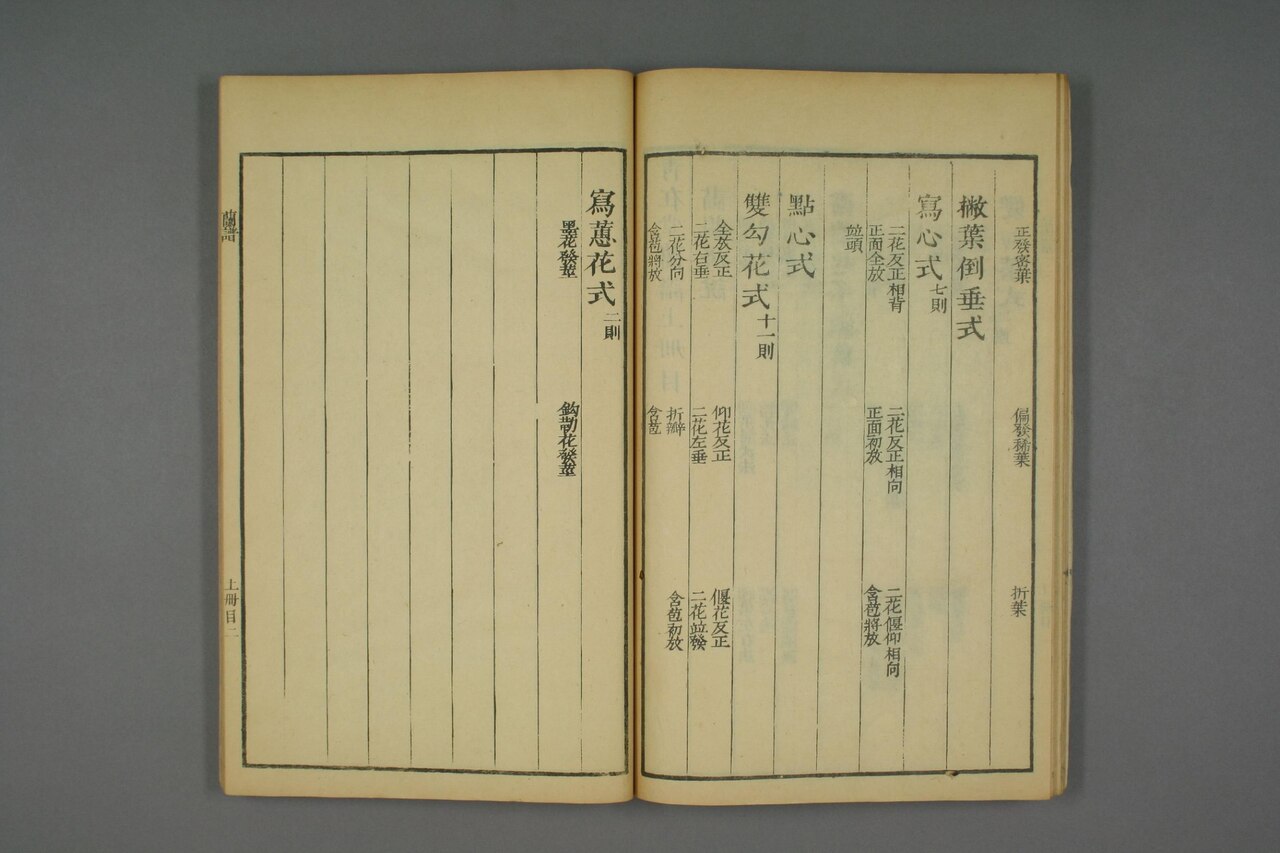 正發密葉 偏發稀葉 折葉
撇葉倒垂式
寫心式 七則
二花反正相背 二花反正相向 二花偃仰相向
正面全放 正面初放 含苞將放
並頭
點心式
雙勾花式 十一則
全放反正 仰花反正 偃花反正
二花右垂 二花左垂 二花並發
二花分向 折瓣 含苞初放
含苞將放 含苞
寫蕙花式 二則
墨花發莖 鈎勒花發莖
蘭譜 上冊目 二